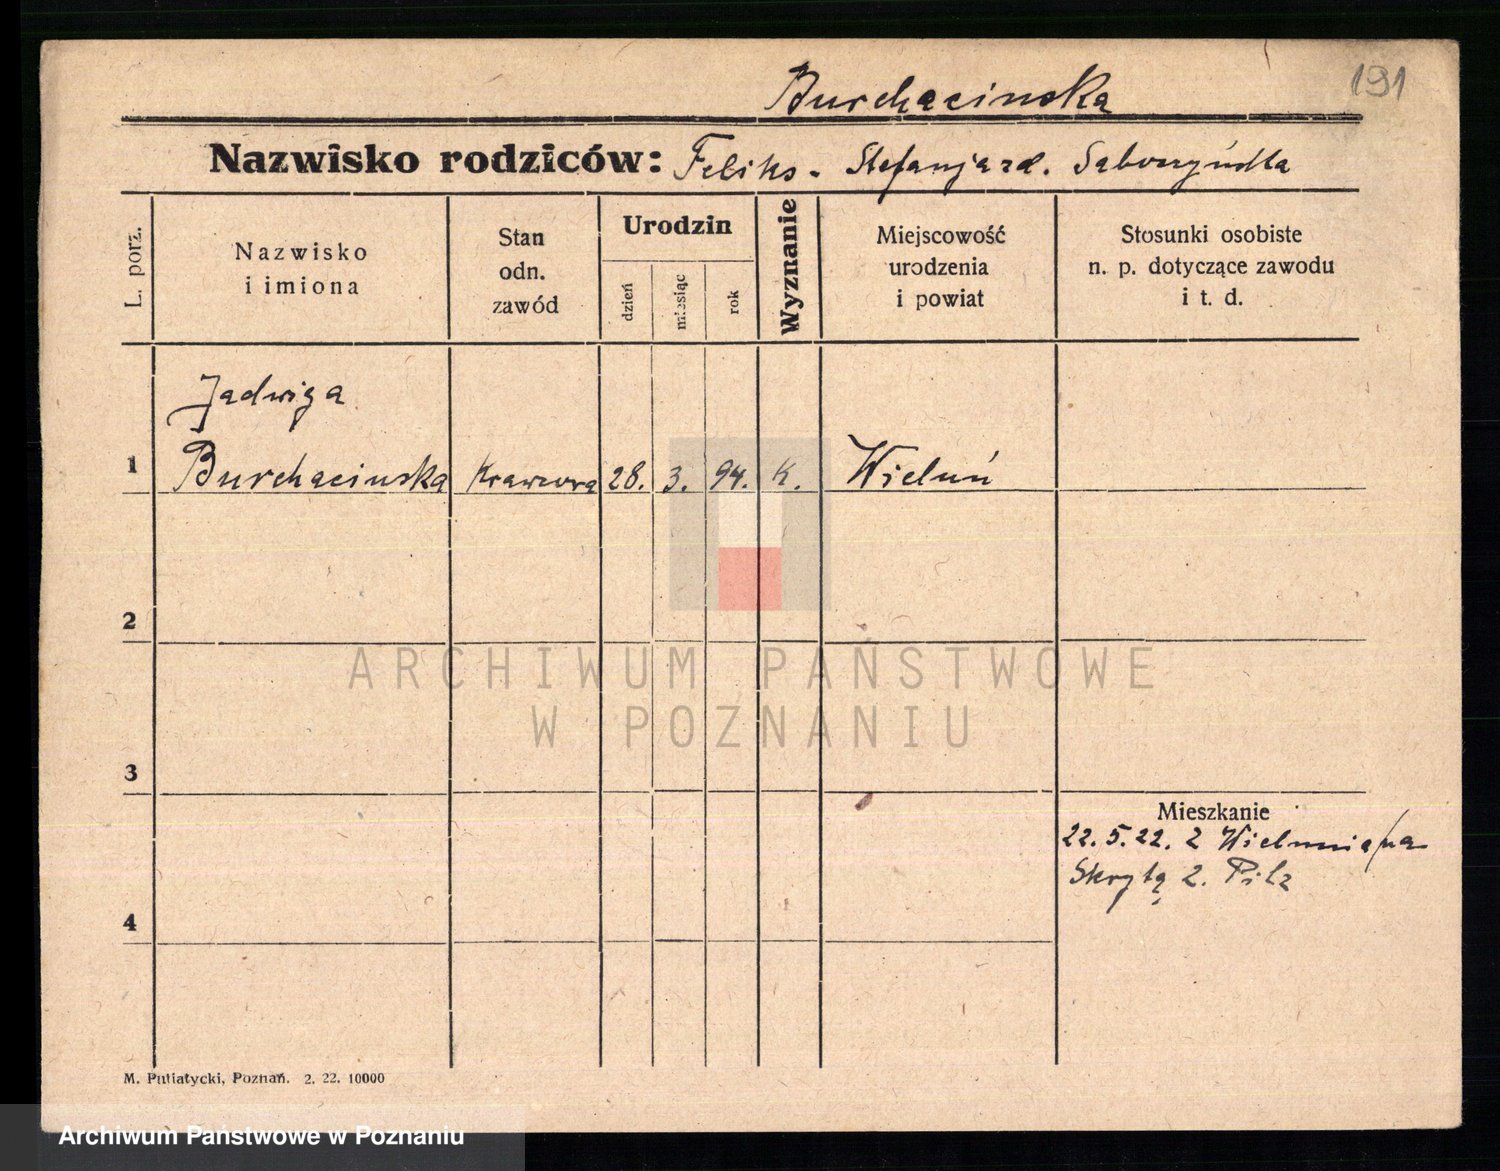 191
Burchacinska
Nazwisko rodziców: Feliks - Stefanja zd.
L. porz.
Nazwisko i imiona
Stan odn. zawód
Urodzin
dzień
miesiąc
rok
Wyznanie
Miejscowość urodzenia i powiat
Stosunki osobiste n. p. dotyczące zawodu i t. d.
Jadwiga
1 Burchacinska Krawcowa 28. 3. 94. K. Wieluń
2
3
4
Mieszkanie
22. 5. 22. z Wielunia
M. Putiatycki, Poznań. 2. 22. 10000
ARCHIWUM PAŃSTWOWE
W POZNANIU
Archiwum Państwowe w Poznaniu